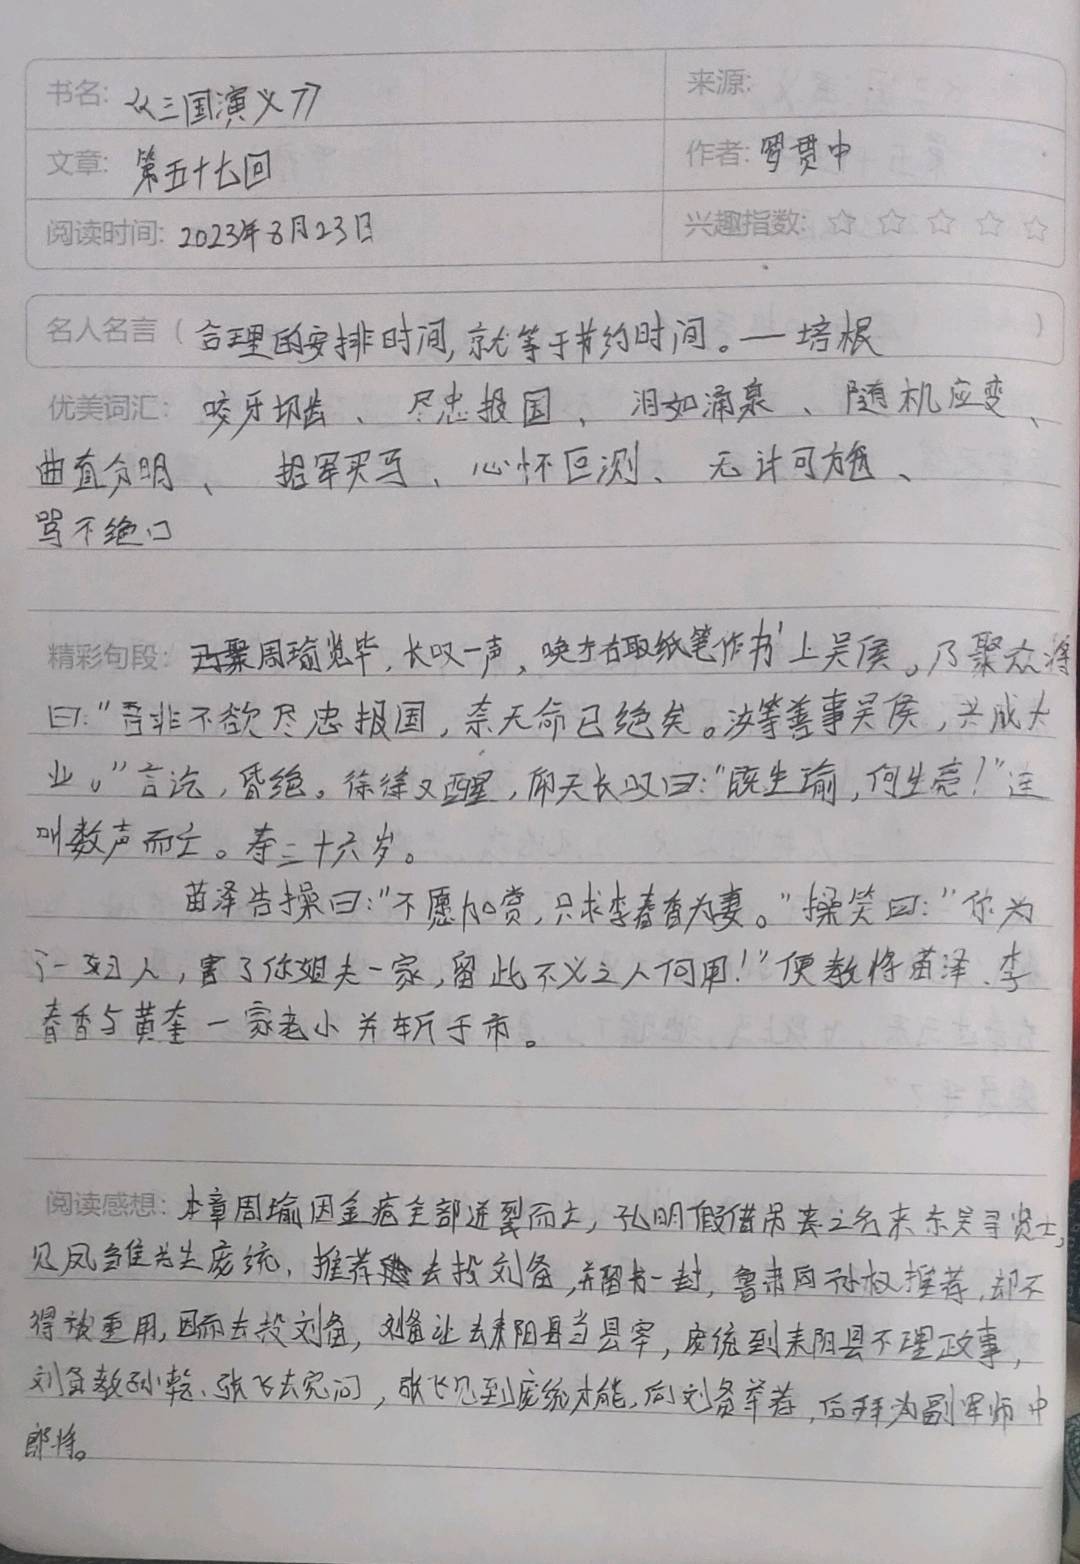 书名: 《三国演义》 来源:
文章: 第五十七回 作者: 罗贯中
阅读时间: 2023年8月23日 兴趣指数: ☆ ☆ ☆ ☆ ☆
名人名言 ( 合理的安排时间,就等于节约时间。—培根 )
优美词汇: 咬牙切齿、尽忠报国、泪如涌泉、随机应变、
曲直分明、招军买马、心怀叵测、无计可施、
骂不绝口
精彩句段: 周瑜览毕,长叹一声,唤左右取纸笔作书上吴侯。乃聚众将
曰:“吾非不欲尽忠报国,奈天命已绝矣。汝等善事吴侯,共成大
业。”言讫,昏绝。徐徐又醒,仰天长叹曰:“既生瑜,何生亮!”连
叫数声而亡。寿三十六岁。
苗泽告操曰:“不愿加赏,只求李春香为妻。”操笑曰:“你为
了一妇人,害了你姐夫一家,留此不义之人何用!”便教将苗泽、李
春香与黄奎一家老小并斩于市。
阅读感想: 本章周瑜因金疮全部迸裂而亡,孔明假借吊丧之名来东吴寻贤士,
见凤雏先生庞统,推荐去投刘备,并留书一封,鲁肃向孙权推荐,却不
得被重用,因而去投刘备,刘备让去耒阳县当县宰,庞统到耒阳县不理政事,
刘备教孙乾、张飞去究问,张飞见到庞统才能,向刘备举荐,后拜为副军师中
郎将。